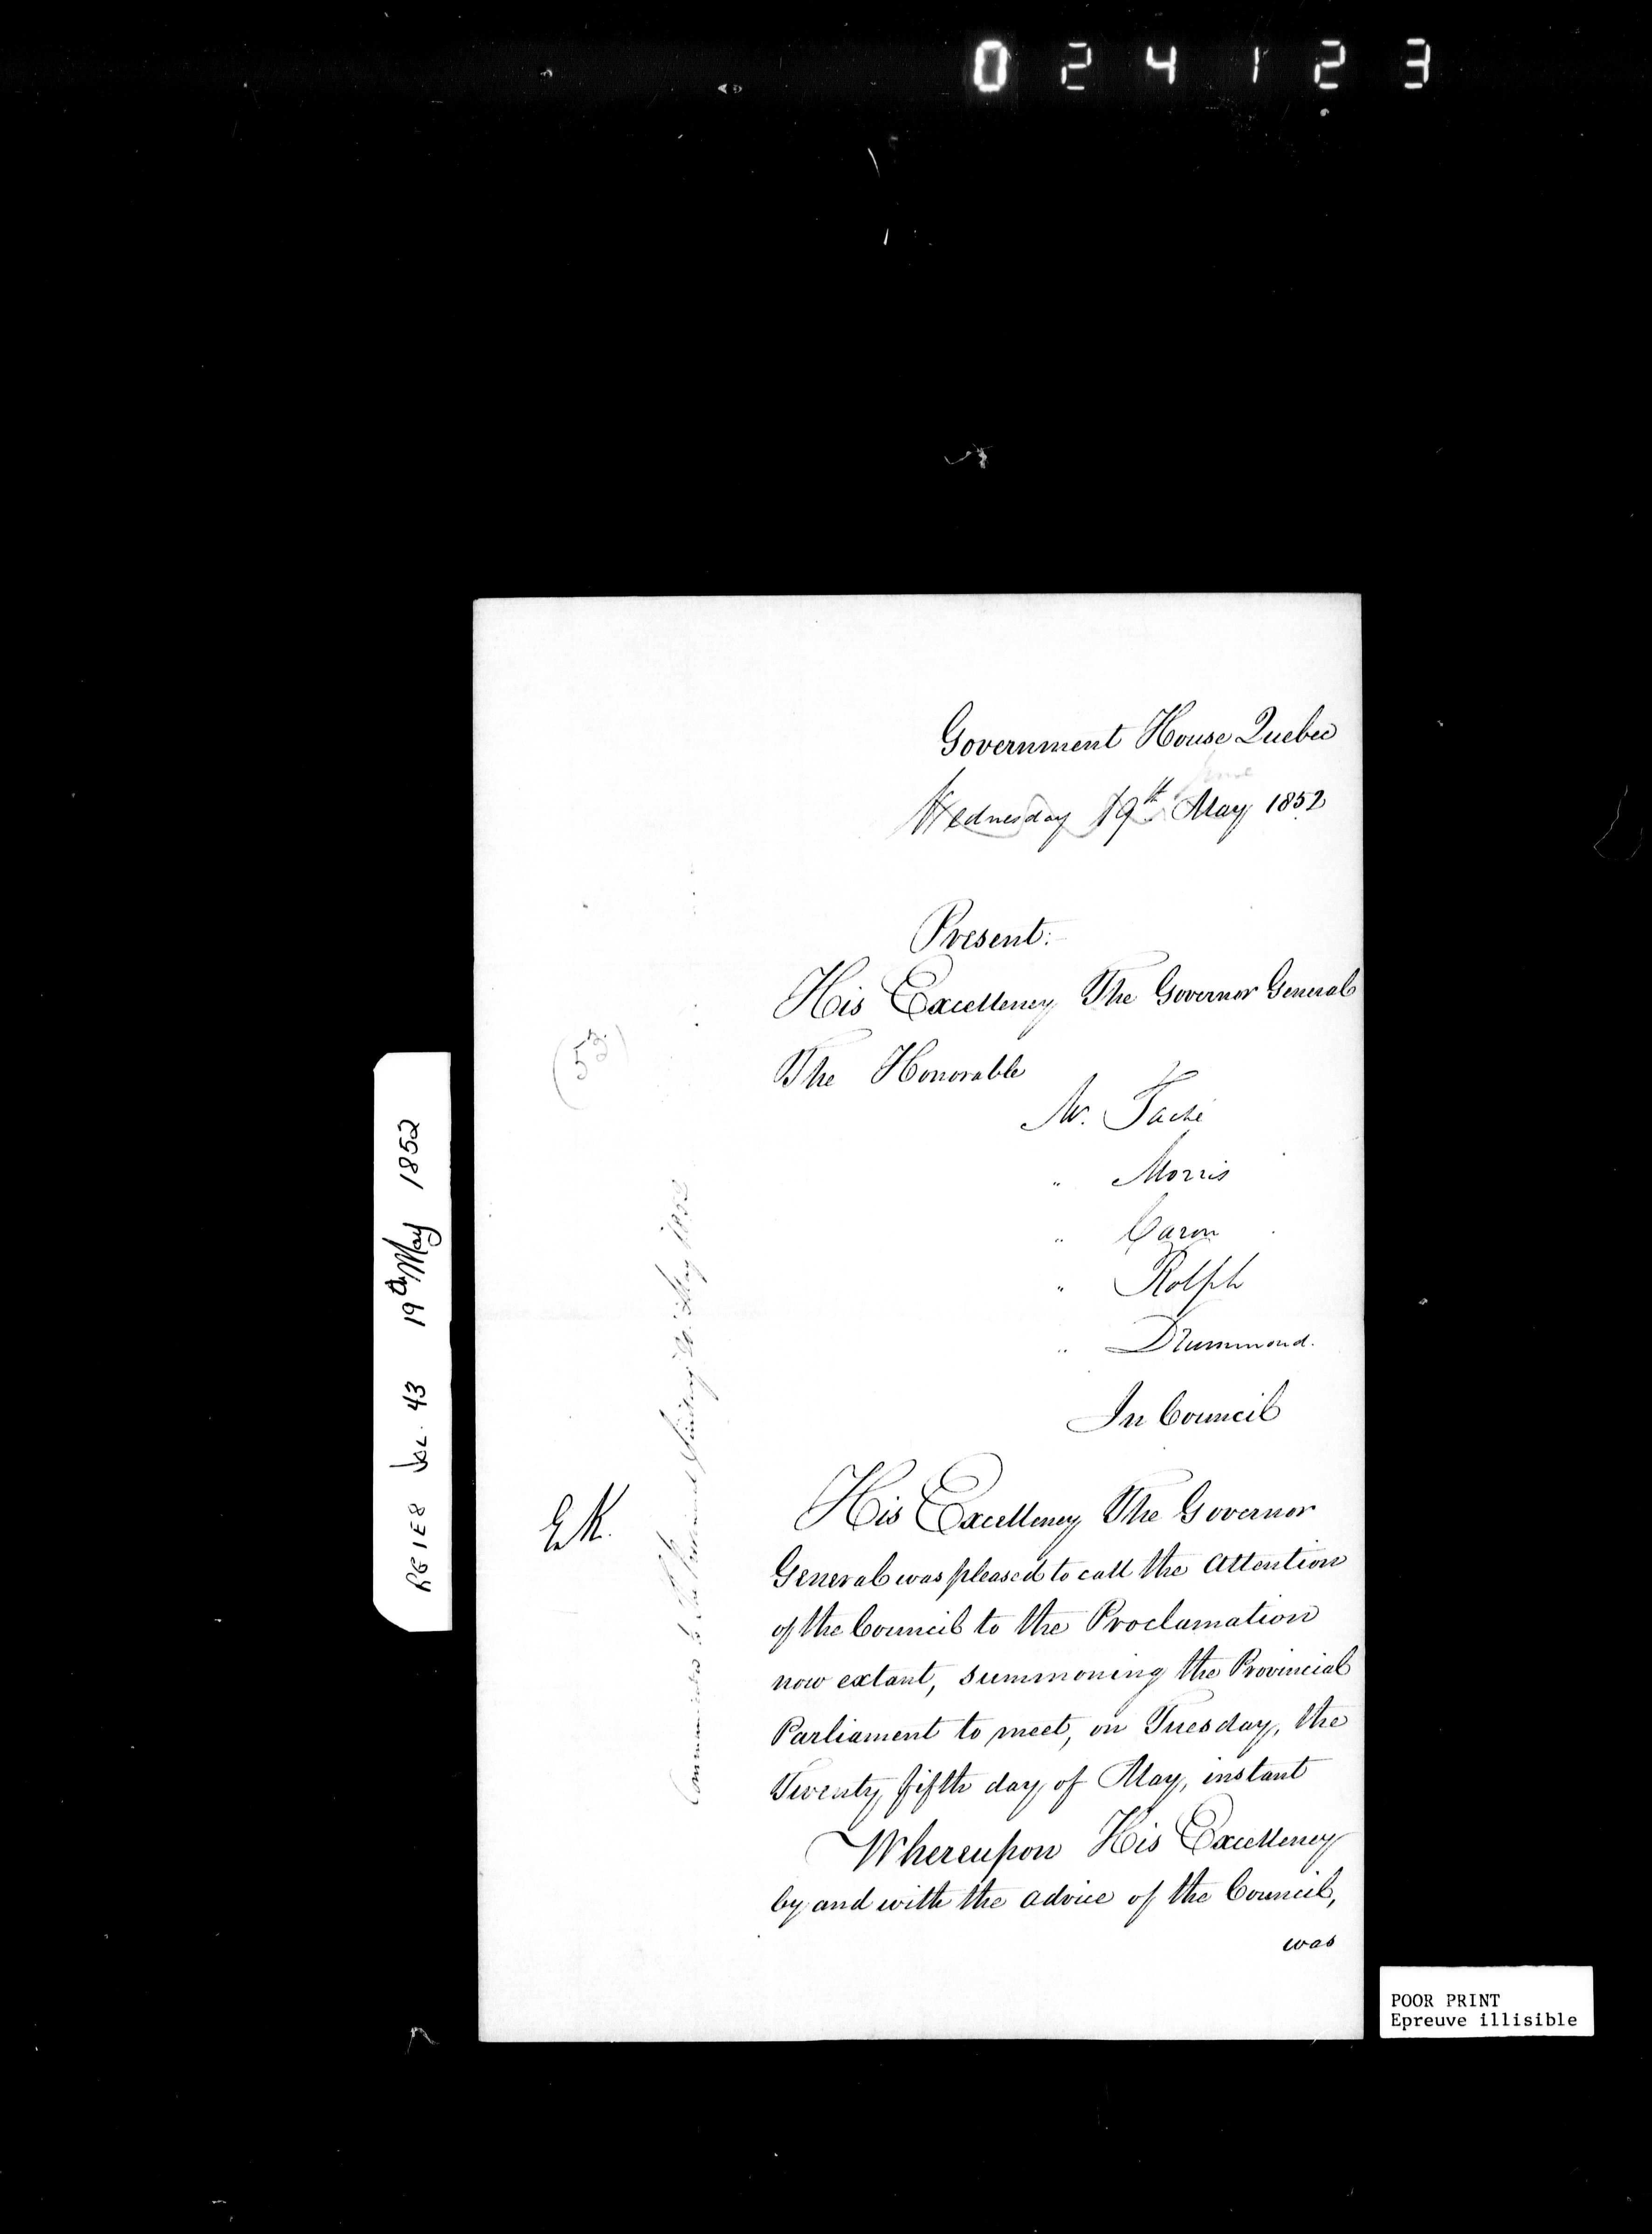 024123
Government House Quebec
June
Wednesday 19th May 1852
Present:
His Excellency The Governor General
The Honorable
Mr. Taché
" Morris
" Caron
" Rolph
" Drummond.
In Council
(53)
E.K.
Communicated to the Provincial Secretary 20. May 1852
His Excellency The Governor
General was pleased to call the Attention
of the Council to the Proclamation
now extant, summoning the Provincial
Parliament to meet, on Tuesday, the
Twenty fifth day of May, instant
Whereupon His Excellency
by and with the advice of the Council,
was
RG 1 E8 Vol. 43 19th May 1852
POOR PRINT
Epreuve illisible